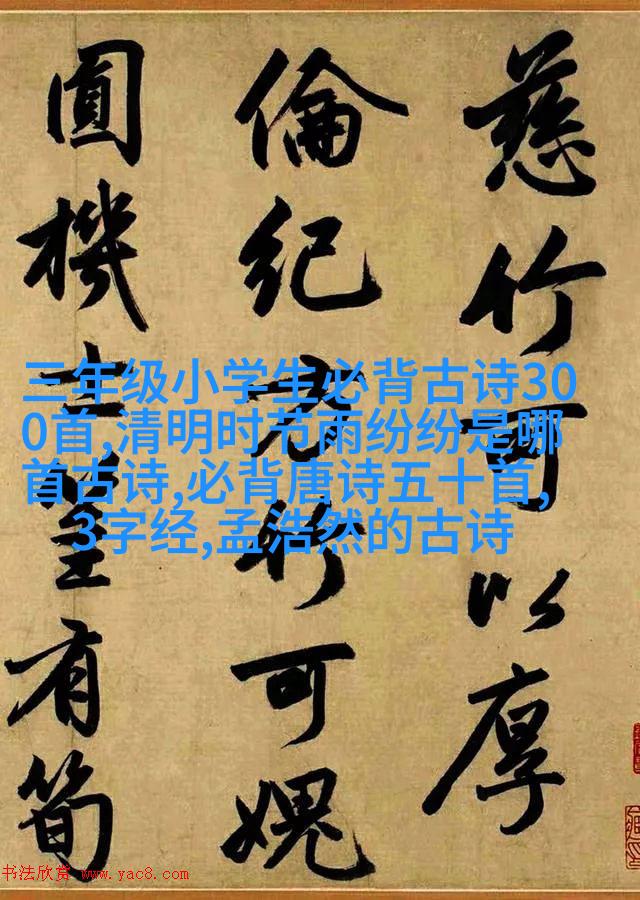 慈竹可以厚
倫紀方竹可愧
圓機士有筍
三年级小学生必背古诗30
0首,清明时节雨纷纷是哪
首古诗,必背唐诗五十首,
3字经,孟浩然的古诗
书法欣赏 www.yac8.com